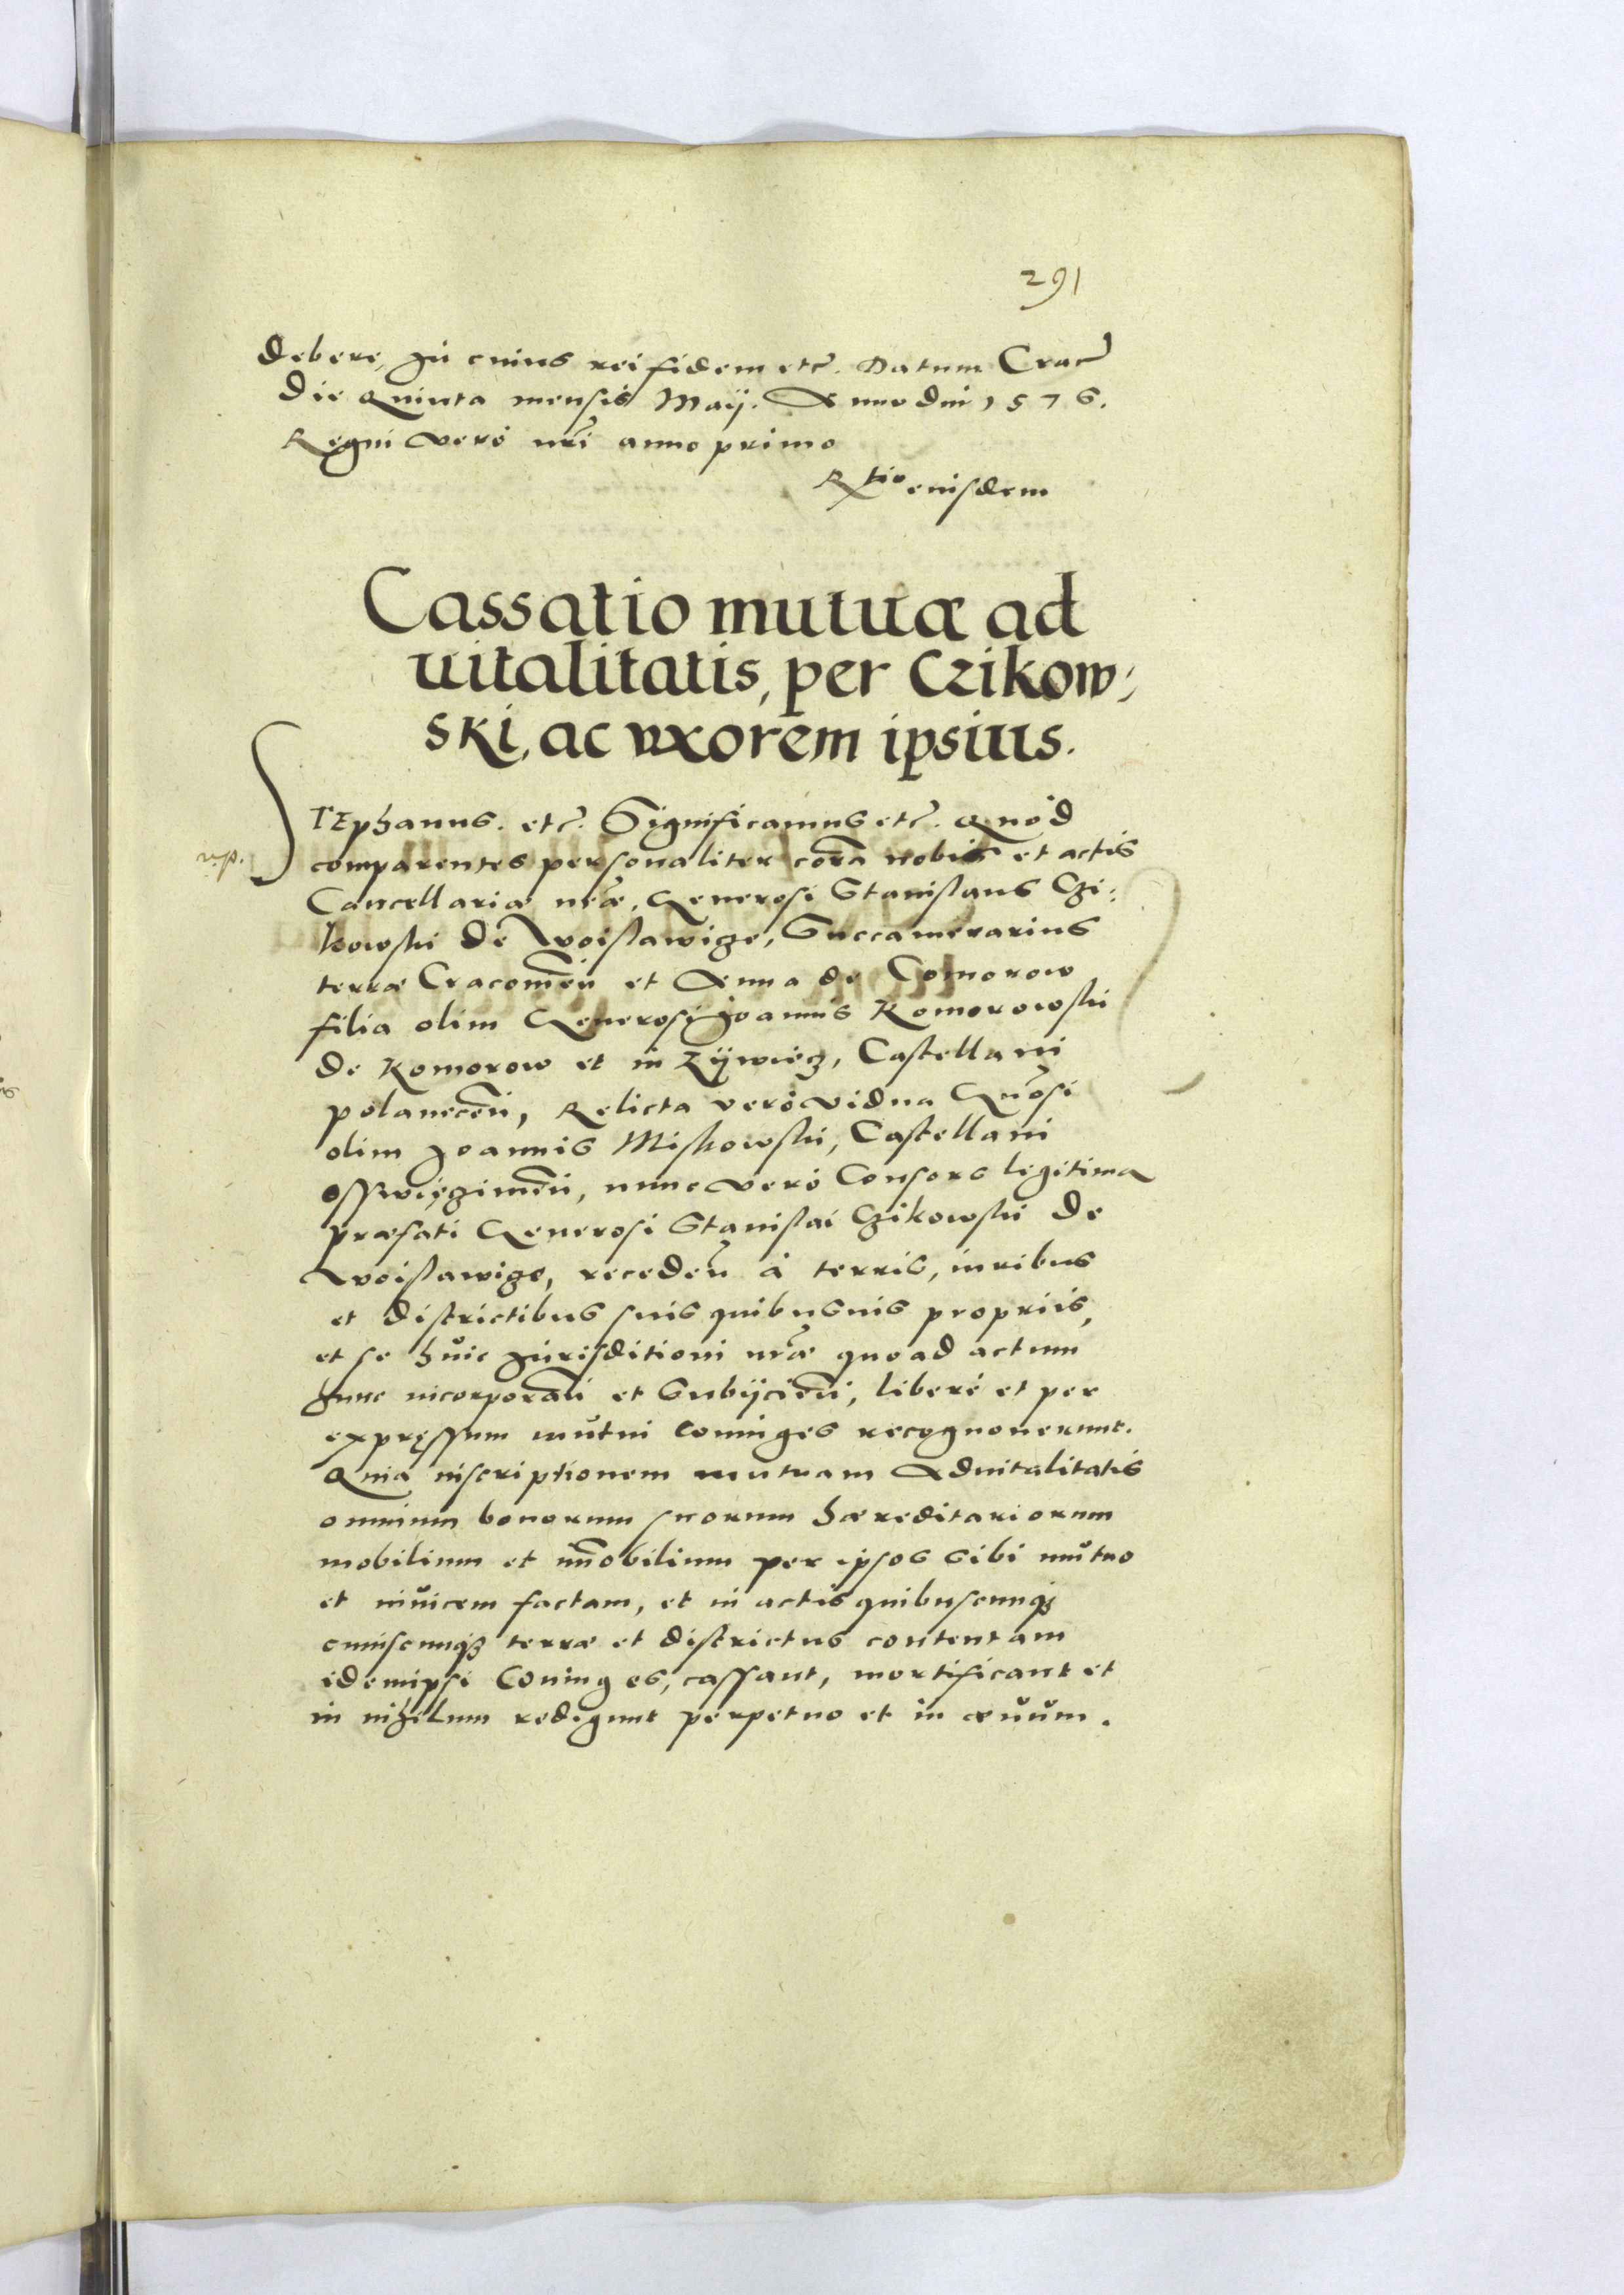 291
debere, In cuius rei fidem etc. Datum Crac
die Quinta mensis Maij. Anno dni 1576.
Regni vero nri anno primo
Rtio eiusdem
Cassatio mutuæ ad
uitalitatis, per Czikow,
ski, ac uxorem ipsius.
STEphanus. etc. Significamus etc. Quod
comparentes personaliter cora nobis et actis
Cancellariæ nræ, Generosi Stanislaus Czi:
kowski de Woislawicze, Succamerarius
terræ Cracouien et Anna de Comorow
filia olim Generosi Joannis Komorowski
de Komorow et in Zÿwiecz, Castellani
polanecen, Relicta vero vidua Gnosi
olim Joannis Miskowski, Castellani
osswięcimen, nunc vero Consors legitima
præfati Generosi Stanislai Czikowski de
Woislawicze, receden à terris, iuribus
et districtibus suis quibusuis propriis,
et se huic Jurisditioni nræ quoad actum
hunc incorporan et Subijcien, libere et per
expressum mutui coniuges recognouerunt.
Quia inscriptionem mutuam Aduitalitatis
omnium bonorum suorum hæreditariorum
mobilium et imobilium per ipsos sibi mutuo
et inuicem factam, et in actis quibuscunq;
cuiuscunq; terræ et districtus contentam
idem ipsi Coniuges, cassant, mortificant et
in nihilum redigunt perpetuo et in æuum.